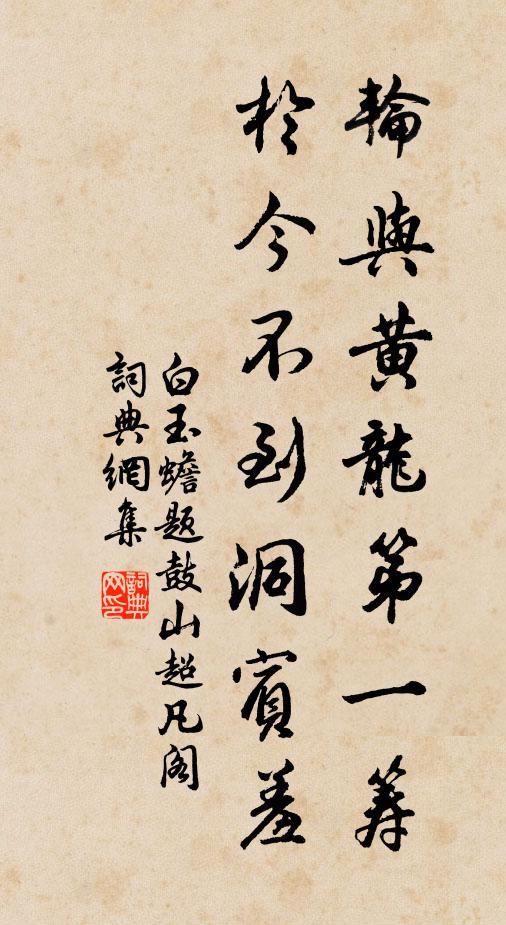 輪與黃龍第一筹
於今不到洞賓羞
白玉蟾题鼓山超凡阁
詞典網集
詞典网印